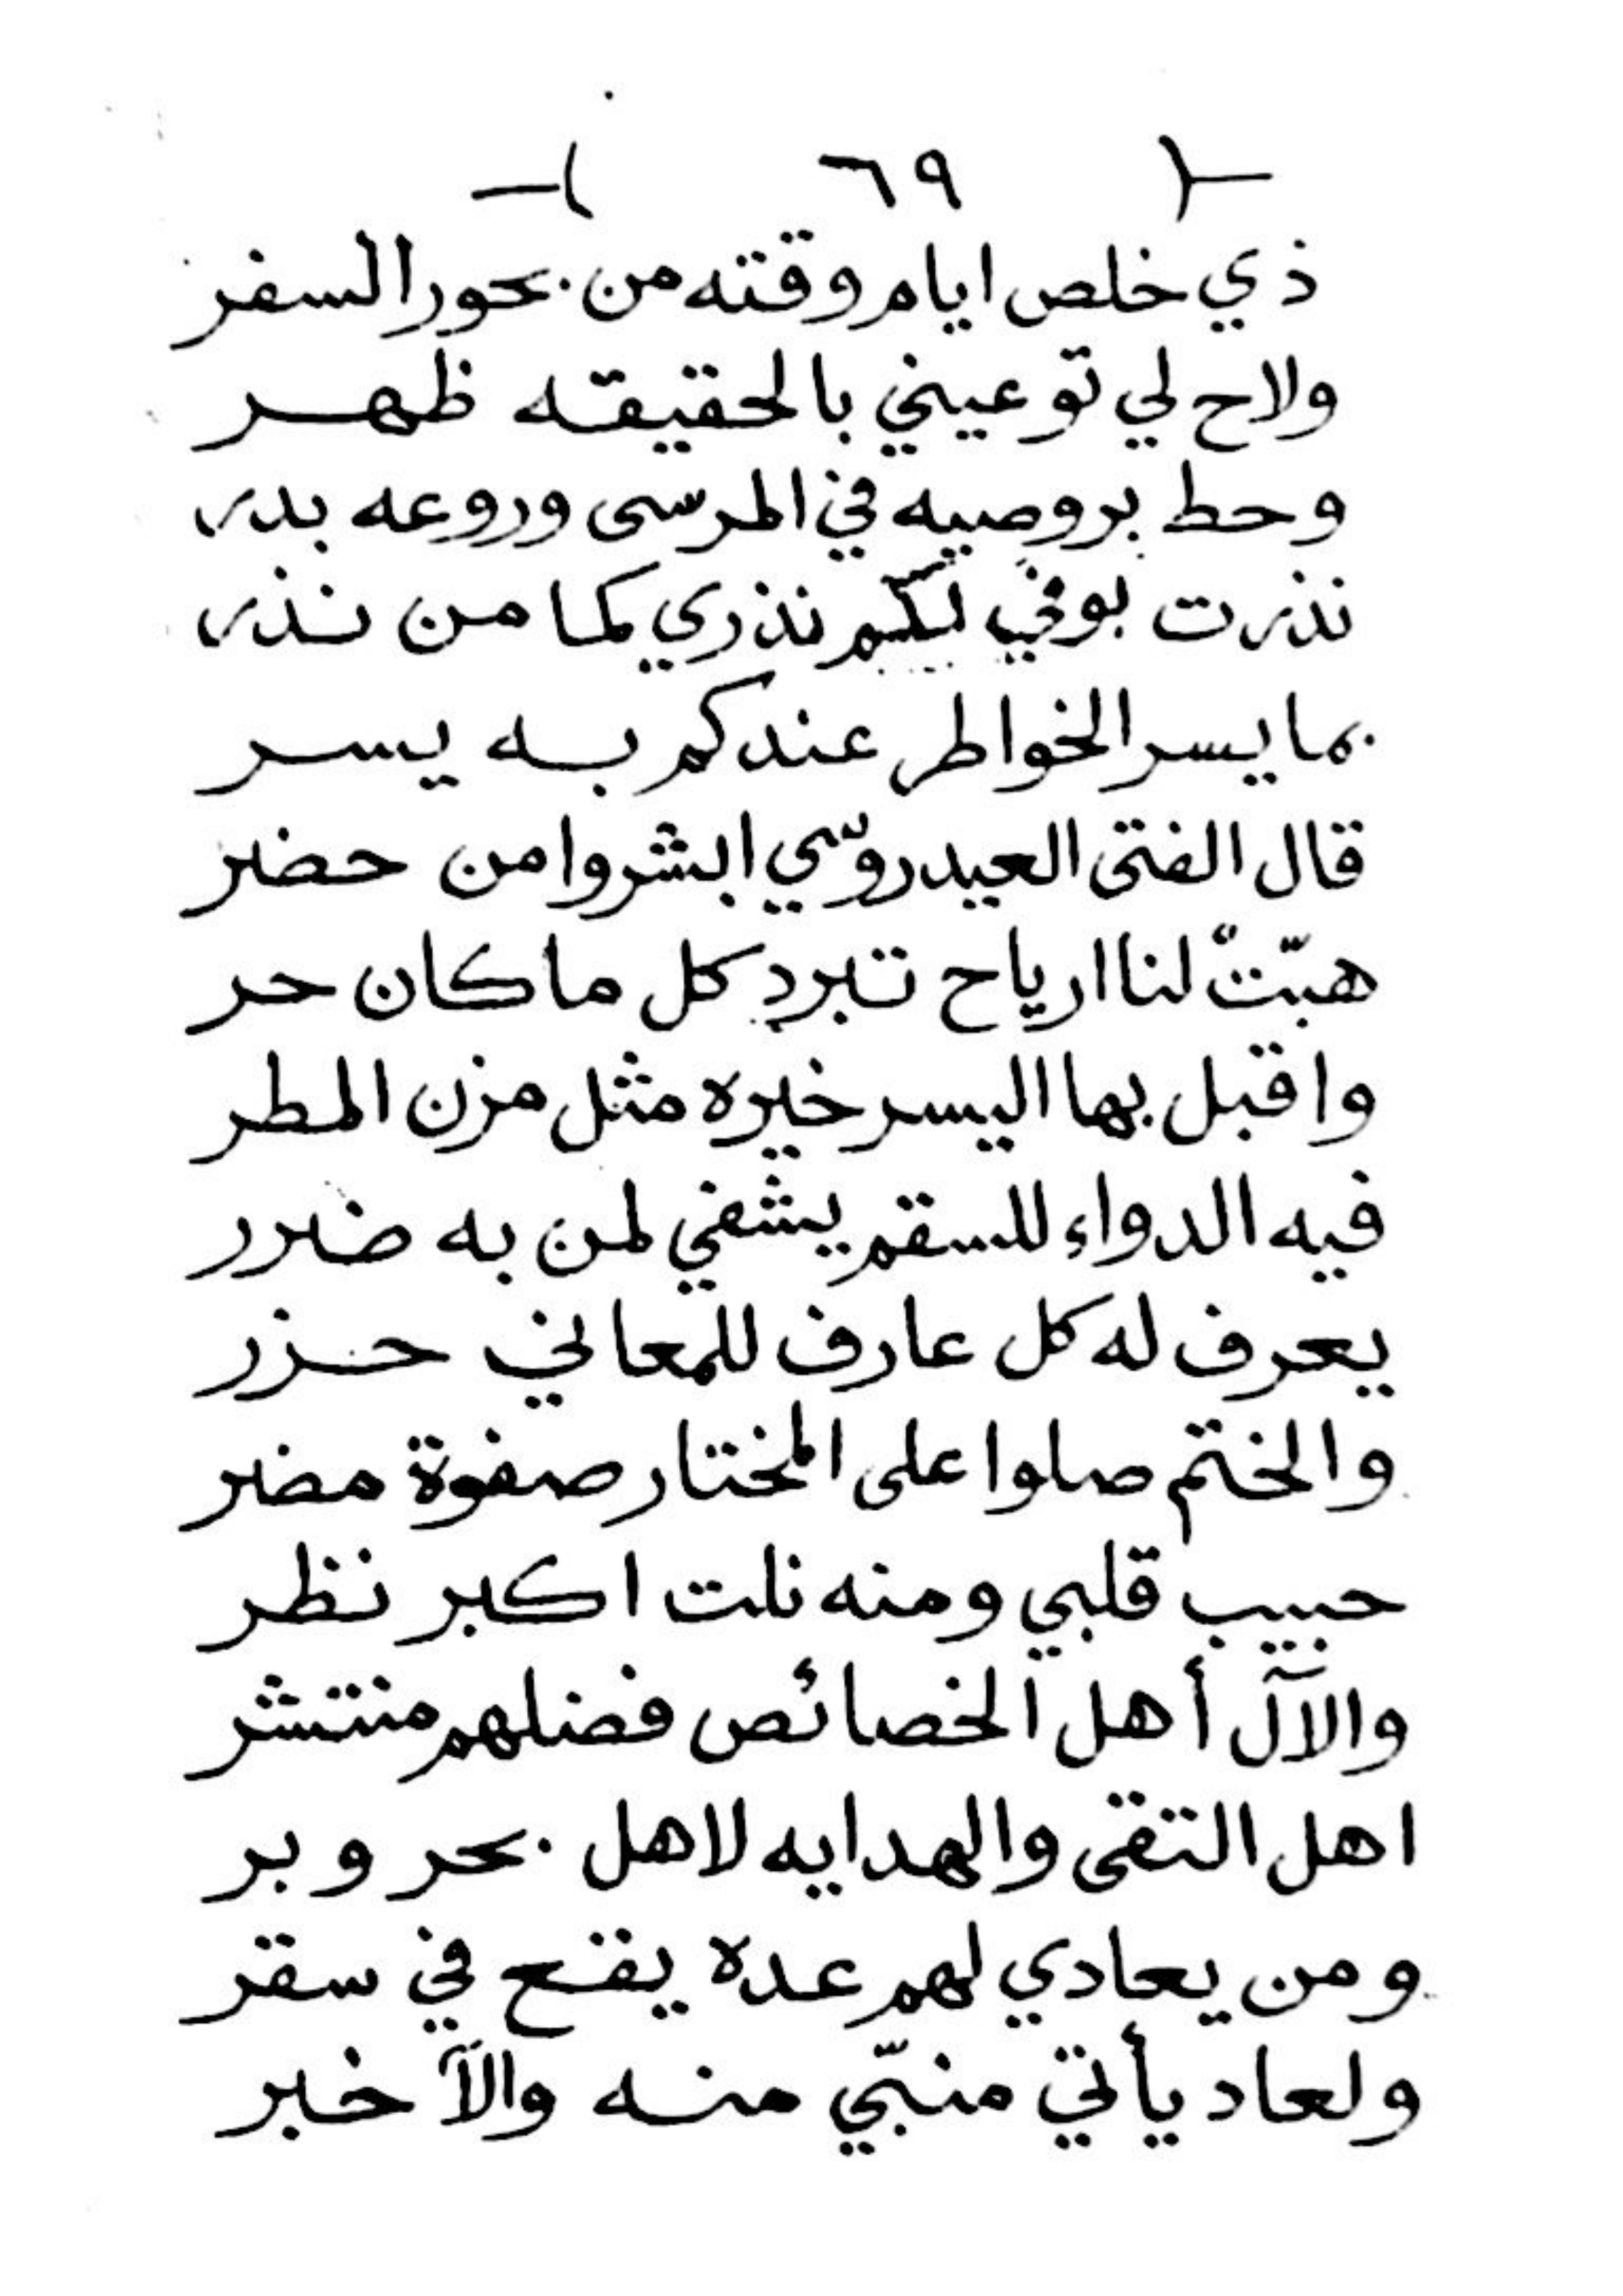 (- ٦٩ -)
ذي خلص ايام وقته من بحور السفر
ولاح لي تو عيني بالحقيقه ظهر
وحط بروصيه في المرسى وروعه بدر
نذرت بوفي لكم نذري كما من نذر
بما يسر الخواطر عندكم به يسر
قال الفتى العيدروسي ابشروا من حضر
هبّتْ لنا ارياح تبرد كل ما كان حر
واقبل بها اليسر خيره مثل مزن المطر
فيه الدواء للسقم يشفي لمن به ضرر
يعرف له كل عارف للمعاني حزر
والختم صلوا على المختار صفوة مضر
حبيب قلبي ومنه نلت اكبر نظر
والآل أهل الخصائص فضلهم منتشر
اهل التقى والهدايه لاهل بحر وبر
ومن يعادي لهم عده يقع في سقر
ولعاد يأتي منبّي منه والّا خبر